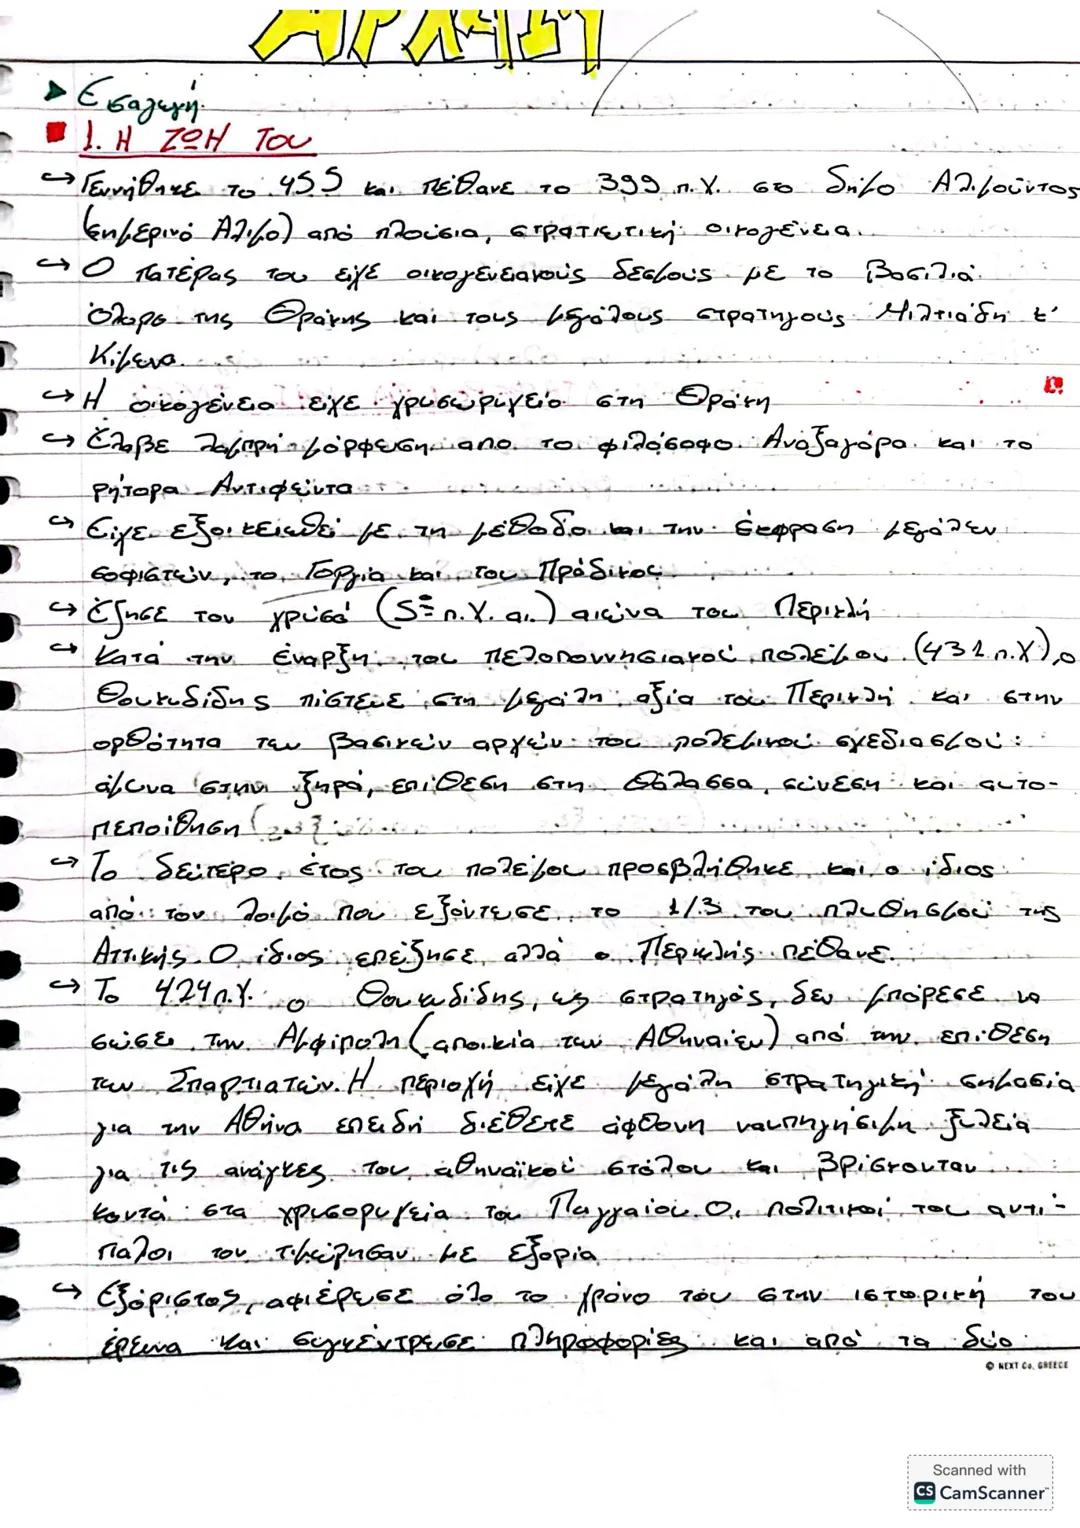 ΑΡΧΑΙΑ
Εισαγωγή
1. Η ΖΩΗ ΤΟΥ
Γεννήθηκε το 455 και πέθανε το 399 π.Χ. στο Δήμο Αλιμούντος
(σημερινό Άλιμο) από πλούσια, στρατιωτική οικογένεια.
Ο πατέρας του είχε οικογενειακούς δεσμούς με το Βασιλιά
Όλορο της Θράκης και τους μεγάλους στρατηγούς Μιλτιάδη κ'
Κίμωνα.
Η οικογένεια είχε χρυσωρυχείο στη Θράκη
Έλαβε λαμπρή μόρφωση από το φιλόσοφο Αναξαγόρα και το
ρήτορα Αντιφώντα
Είχε εξοικειωθεί με τη μέθοδο και την έκφραση μεγάλων
σοφιστών, το Γοργία και του Πρόδικος
Έζησε τον χρυσό (5ος π.Χ. αι.) αιώνα του Περικλή
Κατά την έναρξη του πελοποννησιακού πολέμου (431 π.Χ), ο
Θουκυδίδης πίστευε στη μεγάλη αξία του Περικλή και στην
ορθότητα των βασικών αρχών του πολεμικού σχεδιασμού:
άμυνα στην ξηρά, επίθεση στη θάλασσα, σύνεση και αυτο-
πεποίθηση
Το δεύτερο έτος του πολέμου προσβλήθηκε και ο ίδιος
από τον λοιμό που εξόντωσε το 1/3 του πληθυσμού της
Αττικής. Ο ίδιος επέζησε αλλά ο Περικλής πέθανε.
Το 424π.Χ. ο Θουκυδίδης, ως στρατηγός, δεν μπόρεσε να
σώσει την Αμφίπολη (αποικία των Αθηναίων) από την επίθεση
των Σπαρτιατών. Η περιοχή είχε μεγάλη στρατηγική σημασία
για την Αθήνα επειδή διέθετε άφθονη ναυπηγήσιμη ξυλεία
για τις ανάγκες του αθηναϊκού στόλου και βρίσκονταν
κοντά στα χρυσορυχεία του Παγγαίου. Οι πολιτικοί του αντί-
παλοι τον τιμώρησαν με εξορία
Εξόριστος, αφιέρωσε όλο το χρόνο του στην ιστορική του
έρευνα και συγκέντρωσε πληροφορίες και από τα δύο
© NEXT Co. GREECE
Scanned with
CS CamScanner